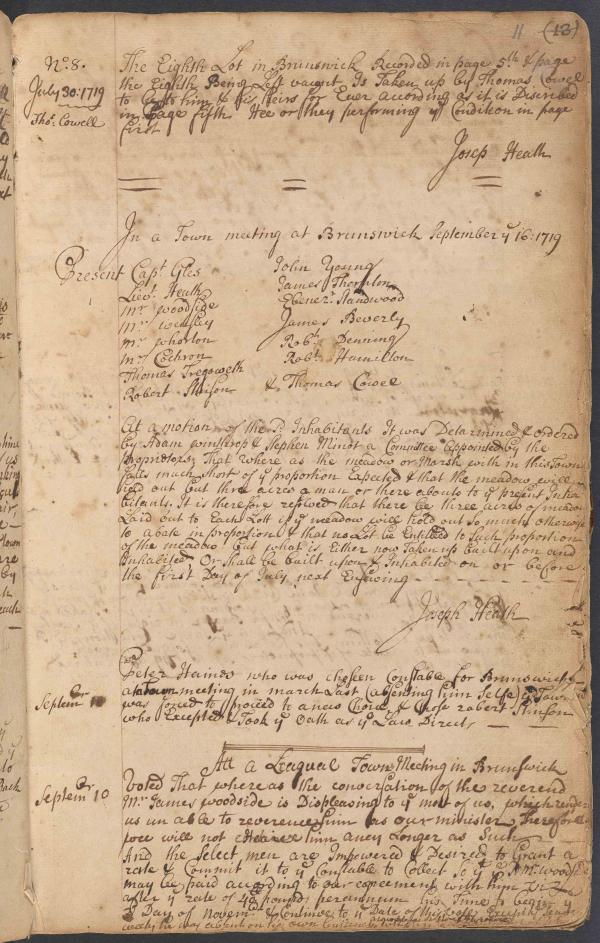 11 (13)
No. 8.
July 30: 1719
Tho: Cowell
The Eighth Lot in Brunswick Recorded in page 5th & page
the Eighth Being Left vacant Is Taken up by Thomas Cowel
to him & his Heirs for Ever according as it is Discribed
in page fifth Hee or they performing ye Condition in page
first
Josep Heath
In a Town meeting at Brunswick September ye 16: 1719
Present Capt Giles
Lievt. Heath
Mr woodside
Mr
Mr whorton
Mr Cochron
Thomas Tregoweth
Robert Stinson
John Young
James Thornton
Ebener. Standwood
James Beverly
Robt. Denning
Robt. Hamillon
& Thomas Cowel
At a motion of the Inhabitants It was Determined & ordered
by Adam winthrop & Stephen Minot a Committee appointed by the
Proprietors, That where as the meadow or Marsh with in this Town
falls much short of ye proportion Expected & that the meadow will
hold out but three acres a man or there abouts to ye present Inha
bitants. It is therefore resolved that there be three acres of meadow
Laid out to Each Lott if ye meadow will hold out so much otherwise
to abate in proportion & that no Lot be Entitled to such proportion
of the meadow but what is Either now Taken up built upon and
Inhabited Or Shall be built upon & Inhabited on or before
the first Day of July next Ensewing
Joseph Heath
Septemr 10
Peter Haines who was chosen Constable for Brunswick
at a town meeting in march Last absenting him selfe ye Town
was forced to proceed to a new Choice & Chose robert Stinson
who Excepted & Took ye Oath as ye Law Directs
Septemr 10
Att a Leagual Town Meeting in Brunswick
Voted That where as the conversation of the reverend
Mr James woodside is Displeasing to ye most of us, which renders
us un able to reverence him as our minister Therefore
wee will not heare him aney Longer as Such
And the Select men are Impowered & Desired to Grant a
rate & Commit it to ye Constable to Collect So ye Mr woodside
may be paid according to our agreement with him
after ye rate of 40 pounds per annum his Time to begin ye
Day of Novemr & Continue to ye Date